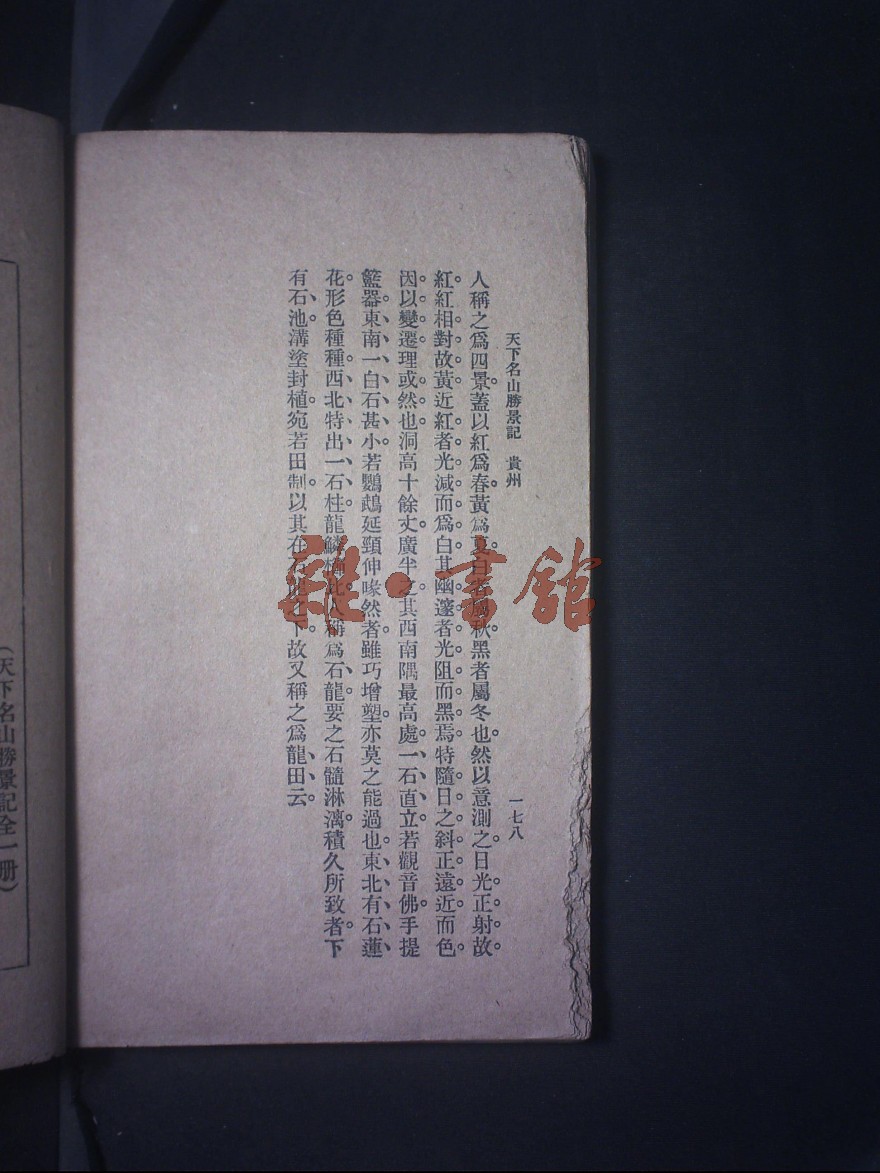 天下名山勝景記　貴州
一七八
人稱之爲四景。蓋以紅爲春。黃爲夏。白者屬秋。黑者屬冬也。然以意測之。日光正射。故
紅。紅相對。故黃。近紅者光減而爲白。其幽邃者光阻而黑焉。特隨日之斜正遠近而色
因以變遷。理或然也。洞高十餘丈。廣半之。其西南隅最高處、一石直立、若觀音佛。手提
籃器。東南一白石甚小。若鸚鵡延頸伸喙然者。雖巧增塑。亦莫之能過也。東北有石蓮
花。形色種種。西北特出一石柱。龍鱗
人稱爲石龍。要之石髓淋漓。積久所致者。下
有石池、溝塗封植。宛若田制。以其在石龍之下。故又稱之爲龍田云。
雜·書館
（天下名山勝景記全一册）